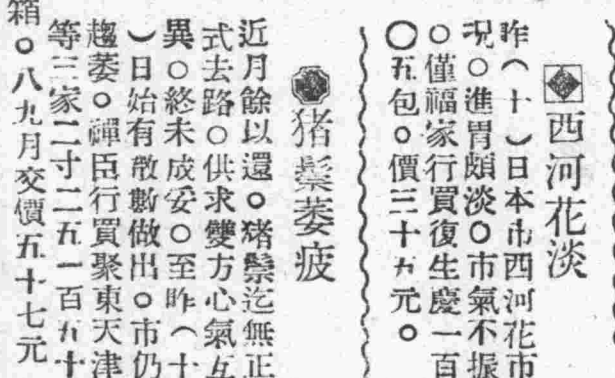 西河花淡
昨（十）日本市西河花市
況○進胃頗淡○市氣不振
○僅福家行買復生慶一百
〇五包○價三十五元○
猪鬃萎疲
近月餘以還○猪鬃迄無正
式去路○供求雙方心氣互
異○終未成妥○至昨（十
）日始有散數做出○市仍
趨萎○禪臣行買聚東天津
等三家二寸二五一百五十
箱○八九月交價五十七元